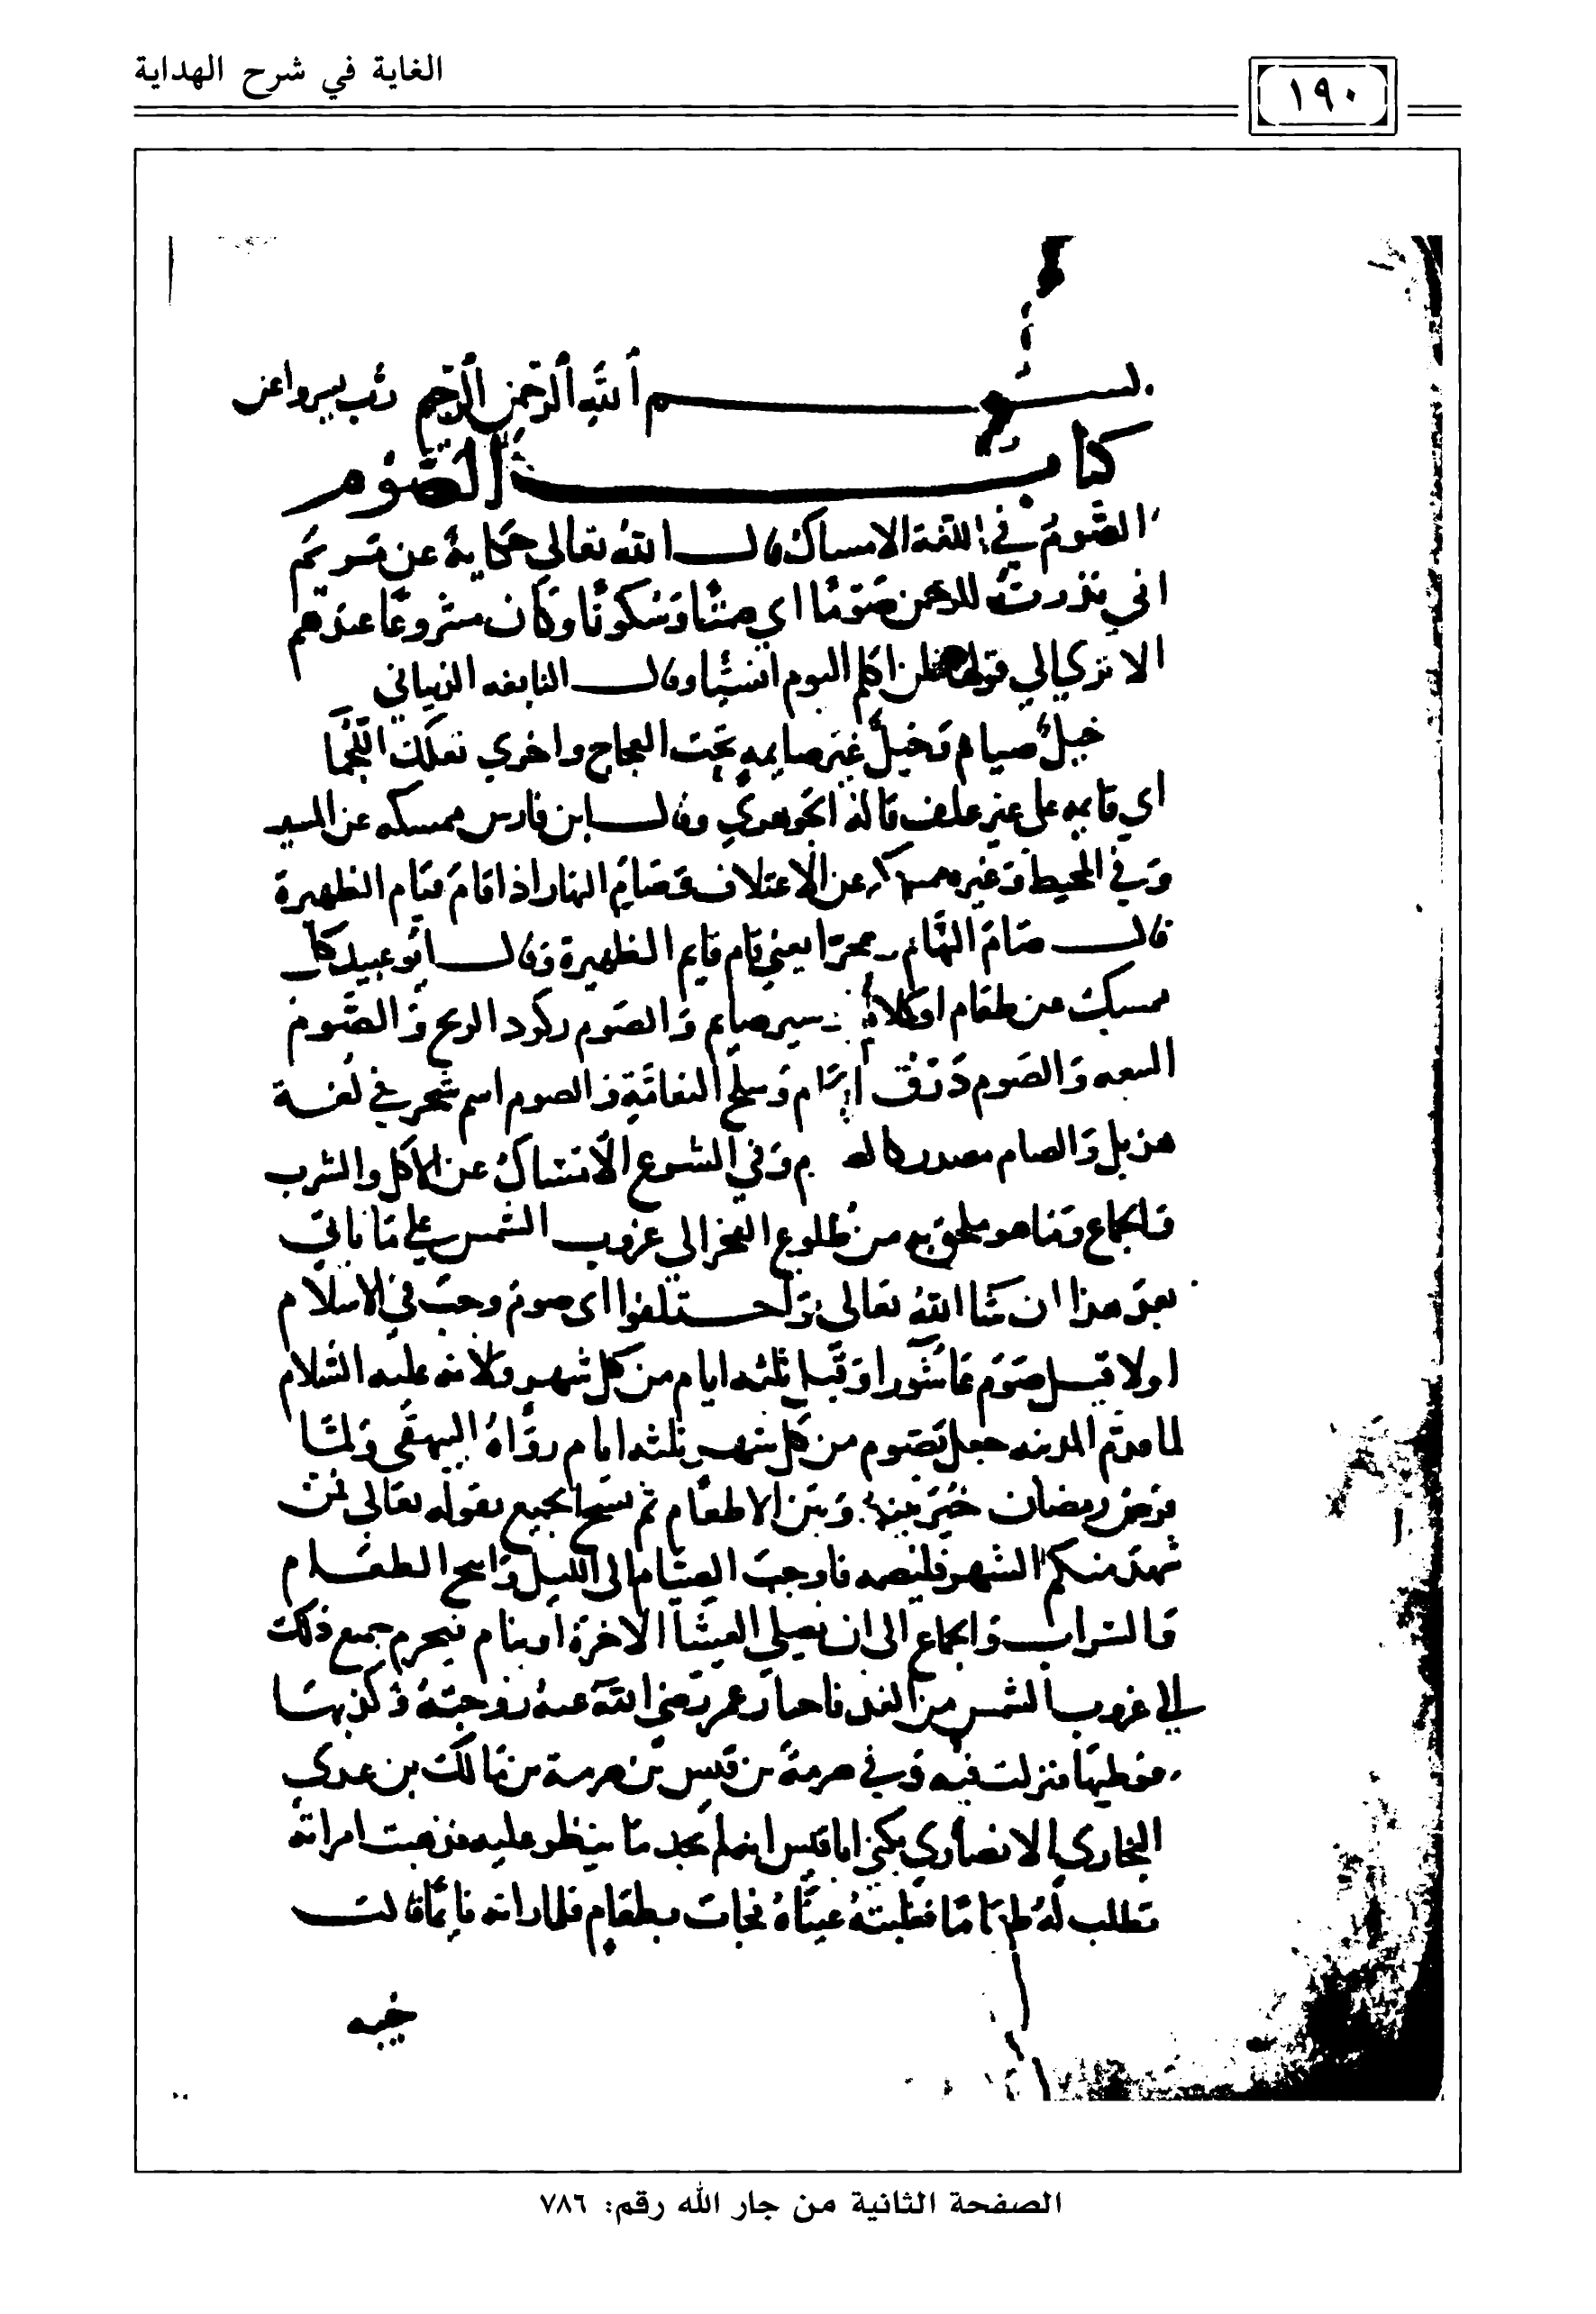 الغاية في شرح الهداية
١٩٠
بسم الله الرحمن الرحيم رب يسر واعن
كتاب الصوم
الصوم في اللغة الامساك قال الله تعالي حكاية عن مريم
اني نذرت للرحمن صوما اي صمتا وسكوتا وكان مشروعا عندهم
الا تري الي قولها فلن اكلم اليوم انسيا وقال النابغه الذبياني
خيل صيام وخيل غير صايمه تحت العجاج واخري تعلك اللجما
اي قايمه علي غير علف قاله الجوهري وقال ابن فارس ممسكه عن السير
وفي المحيط وغيره عن الاعتلاف وصام النهار اذا قام قيام الظهيرة
قال صام النهار وهجرا يعني قام قايم الظهيرة وقال ابو عبيد كل
ممسك عن طعام او كلام سير صايم والصوم ركود الريح والصوم
البيعه والصوم ذرق وسلح النعامة والصوم اسم شجر في لغة
هذيل والصام مصدر وفي الشرع الامساك عن الاكل والشرب
والجماع وما هو ملحق به من طلوع الفجر الي غروب الشمس علي ما ياتي
بعد هذا ان شا الله تعالي واختلفوا اي صوم وجب في الاسلام
اولا قيل صوم عاشورا وقيل ثلثه ايام من كل شهر ولانه عليه السلام
لما قدم المدينه جعل يصوم من كل شهر ثلثه ايام رواه البيهقي ولما
فرض رمضان خير بينه وبين الاطعام ثم نسخ الجميع بقوله تعالي فمن
شهد منكم الشهر فليصمه فاوجب الصيام الي الليل وابيح الطعام
والشراب والجماع الي ان يصلي العشا الاخرة او ينام فيحرم جميع ذلك
الي غروب الشمس من الغد فاختار عمر رضي الله عنه زوجته وكذبها
فوطيها فنزلت فيه وفي صرمة بن قيس بن صرمة بن مالك بن عدي
النجاري الانصاري يكني ابا قيس انه لم يجد ما يفطر عليه فذهبت امراته
تطلب له طعاما فغلبته عيناه فجات بطعام فلما راته نايما قالت
خيبه
الصفحة الثانية من جار الله رقم: ٧٨٦